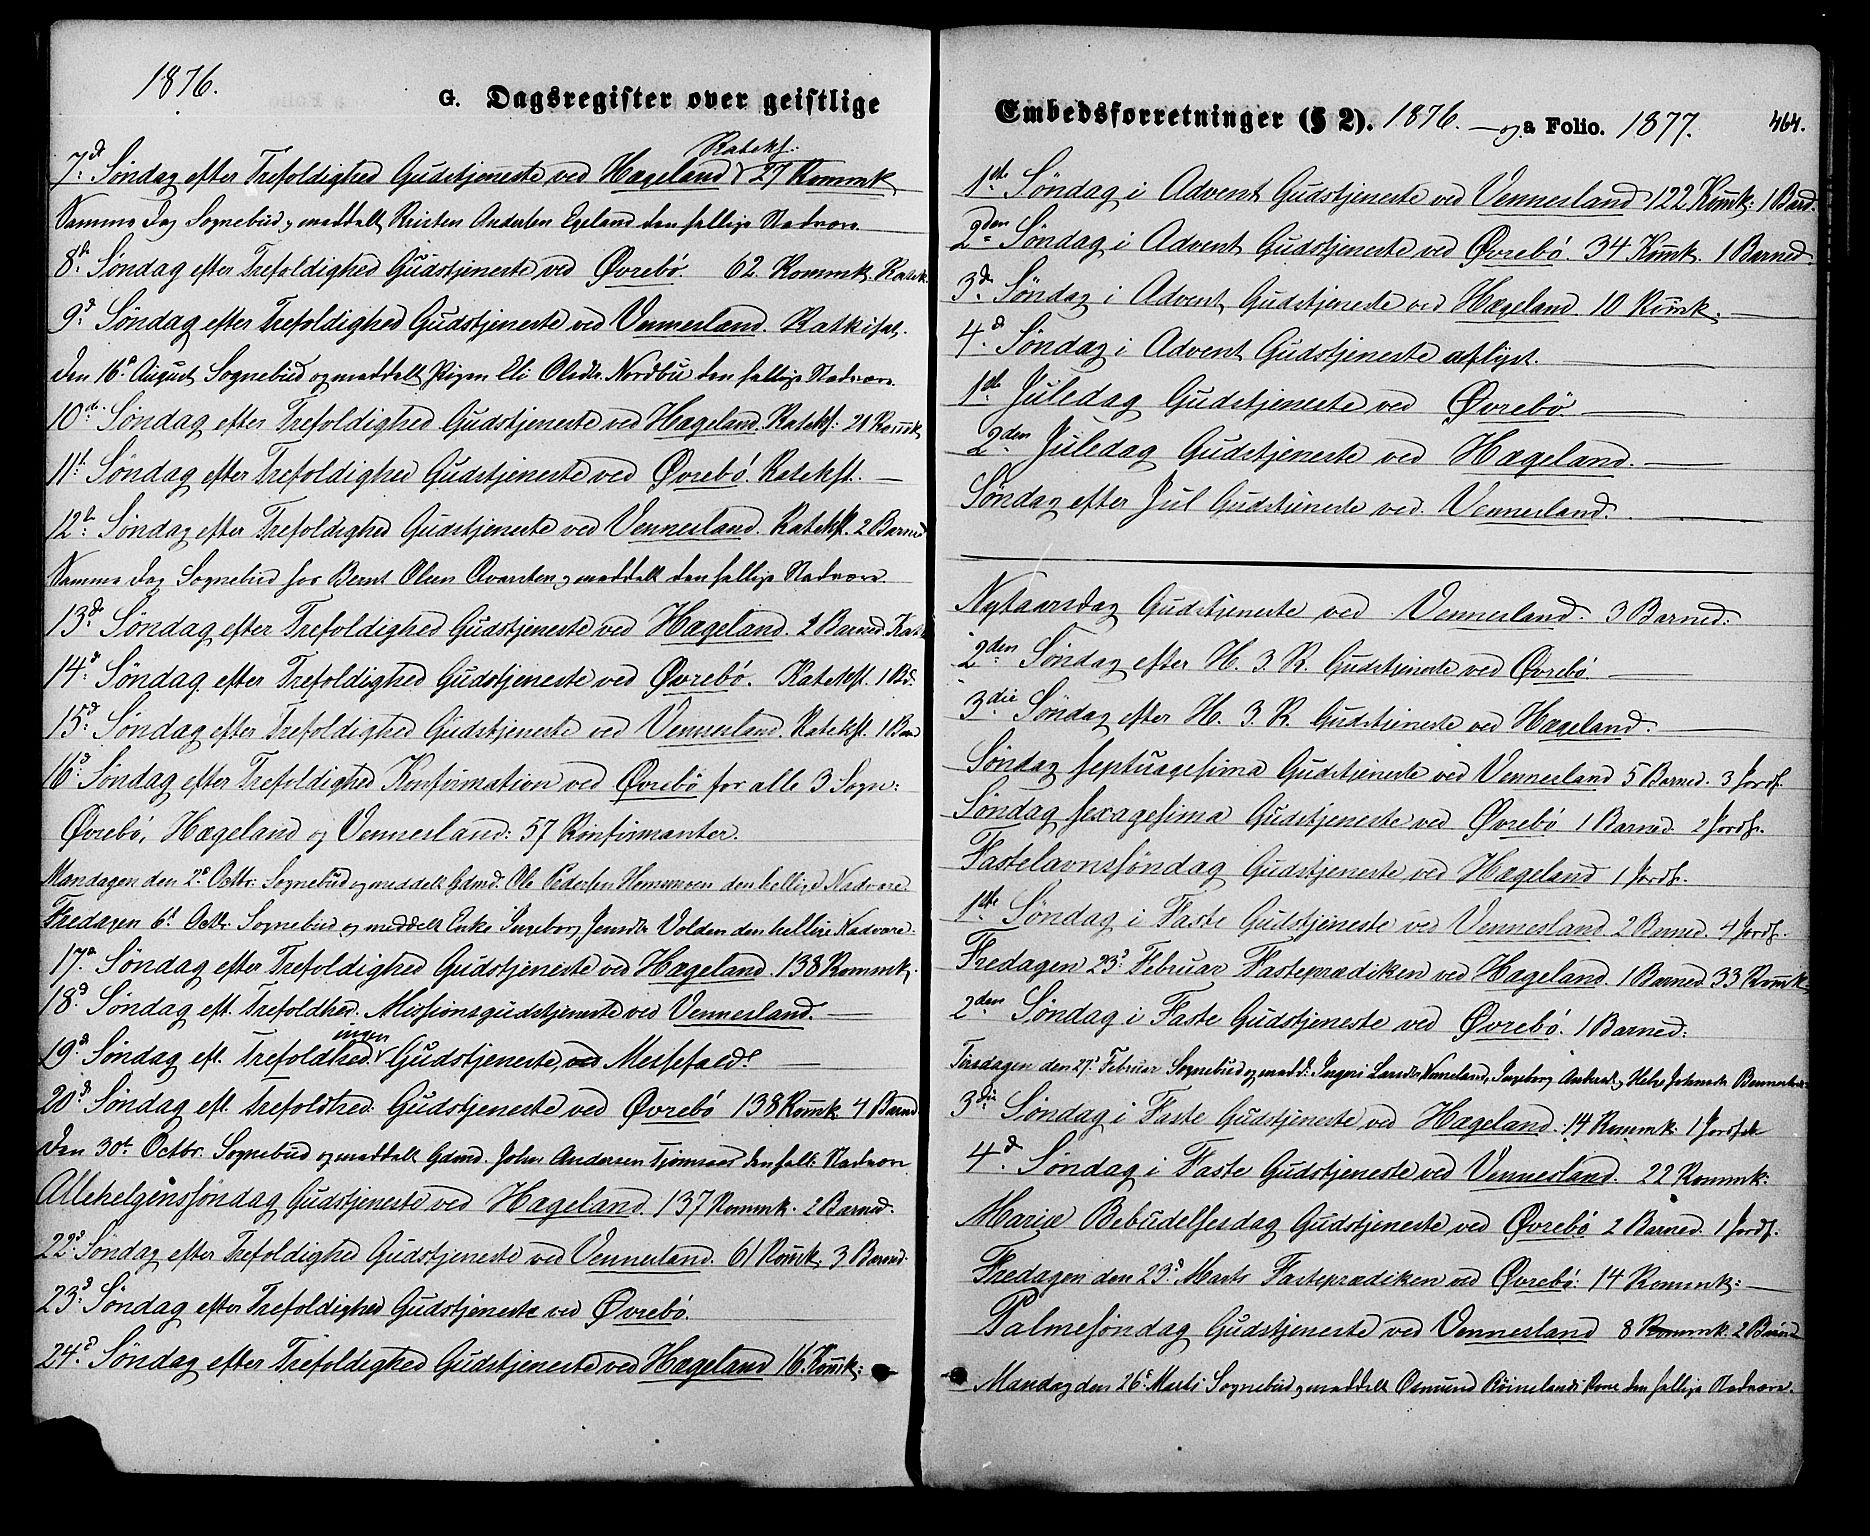 1876.
G. Dagsregister over geistlige
Kateks.
7d Søndag efter Trefoldighed Gudstjeneste ved Hægeland 27 Kommk
Samme Dag Sognebud og meddelt Andersen Egeland den hellige Nadvere
8d Søndag efter Trefoldighed Gudstjeneste ved Øvrebö. 62 Kommk. Katek.
9d Søndag efter Trefoldighed Gudstjeneste ved Vennesland. Katkisat.
Den 16d August Sognebud og meddelt Pigen Eli Olsdtr Nordbu den hellige Nadvere.
10de Søndag efter Trefoldighed Gudstjeneste ved Hægeland. Kateks: 21 Kommk
11t Søndag efter Trefoldighed Gudstjeneste ved Øvrebö. Katekst. —
12t Søndag efter Trefoldighed Gudstjeneste ved Vennesland. Katekst. 2 Barned
Samme Dag Sognebud hos Bernt Olsen og meddelt den hellige Nadvere.
13de Søndag efter Trefoldighed Gudstjeneste ved Hægeland. 2 Barned. Kat
14d Søndag efter Trefoldighed Gudstjeneste ved Øvrebö. Katekst. 1 Bd.
15d Søndag efter Trefoldighed Gudstjeneste ved Vennesland. Katekst. 1 Barn
16d Søndag efter Trefoldighed Konfirmation ved Øvrebö for alle 3 Sogn:
Øvrebö, Hægeland og Vennesland: 57 Konfirmanter.
Mandagen den 2d Octbr: Sognebud og meddelt Gdmd. Ole Pedersen den hellige Nadvere
Fredagen 6t Octbr. Sognebud og meddelt Enke Ingeborg Jensdtr Volden den hellige Nadvere.
17d Søndag efter Trefoldighed Gudstjeneste ved Hægeland. 138 Kommk.
18d Søndag eft. Trefoldhed. Missionsgudstjeneste ved Vennesland. —
19d Søndag eft. Trefoldhed ingen Gudstjeneste, Messefald. —
20d Søndag eft. Trefoldhed. Gudstjeneste ved Øvrebö 138 Kommk 4 Barnd
Den 30t Octbr. Sognebud og meddelt Gdmd. John Andersen Tjomsaas den hell. Nadvere
Allehelgensföndag Gudstjeneste ved Hægeland. 137 Kommk. 2 Barned.
22d Søndag efter Trefoldighed Gudstjeneste ved Vennesland. 61 Komk. 3 Barned.
23d Søndag efter Trefoldighed Gudstjeneste ved Øvrebö.
24d Søndag efter Trefoldighed Gudstjeneste ved Hægeland 16 Komk:
Embedsforretninger (§ 2). 1876. — og a Folio. 1877. 464.
1ste Søndag i Advent Gudstjeneste ved Vennesland 122 Komk: 1 Barnd.
2den Søndag i Advent Gudstjeneste ved Øvrebö. 34 Komk. 1 Barned.
3d Søndag i Advent Gudstjeneste ved Hægeland. 10 Komk. —
4d Søndag i Advent Gudstjeneste aflyst. —
1ste Juledag Gudstjeneste ved Øvrebö —
2den Juledag Gudstjeneste ved Hægeland. —
Søndag efter Jul Gudstjeneste ved Vennesland. —
Nytaarsdag Gudstjeneste ved Vennesland. 3 Barned:
2den Søndag efter H. 3. K. Gudstjeneste ved Øvrebö —
3die Søndag efter H. 3. K. Gudstjeneste ved Hægeland. —
Søndag septuagesima Gudstjeneste ved Vennesland 5 Barned. 3 Jordf.
Søndag sexagesima Gudstjeneste ved Øvrebö 1 Barned. 2 Jordf.
Fastelavnsføndag Gudstjeneste ved Hægeland 1 Jordf.
1ste Søndag i Faste Gudstjeneste ved Vennesland 2 Barned. 4 Jordf.
Fredagen 23d Februar Fasteprædiken ved Hægeland. 1 Barned. 33 Komk.
2den Søndag i Faste Gudstjeneste ved Øvrebö. 1 Barned:
Tirsdagen den 27d Februar Sognebud og medd: Ingeborg
3die Søndag i Faste Gudstjeneste ved Hægeland. 14 Kommk. 1 Jordf.
4d Søndag i Faste Gudstjeneste ved Vennesland. 22 Kommk:
Mariæ Bebudelsesdag Gudstjeneste ved Øvrebö 2 Barned. 1 Jordf.
Fredagen den 23d Marts Fasteprædiken ved Øvrebö. 14 Kommk: —
Palmesöndag Gudstjeneste ved Vennesland 8 Kommk. 2 Barned
Mandag den 26d Marts Sognebud og meddelt Osmund Röinelands Kone den hellige Nadvere.